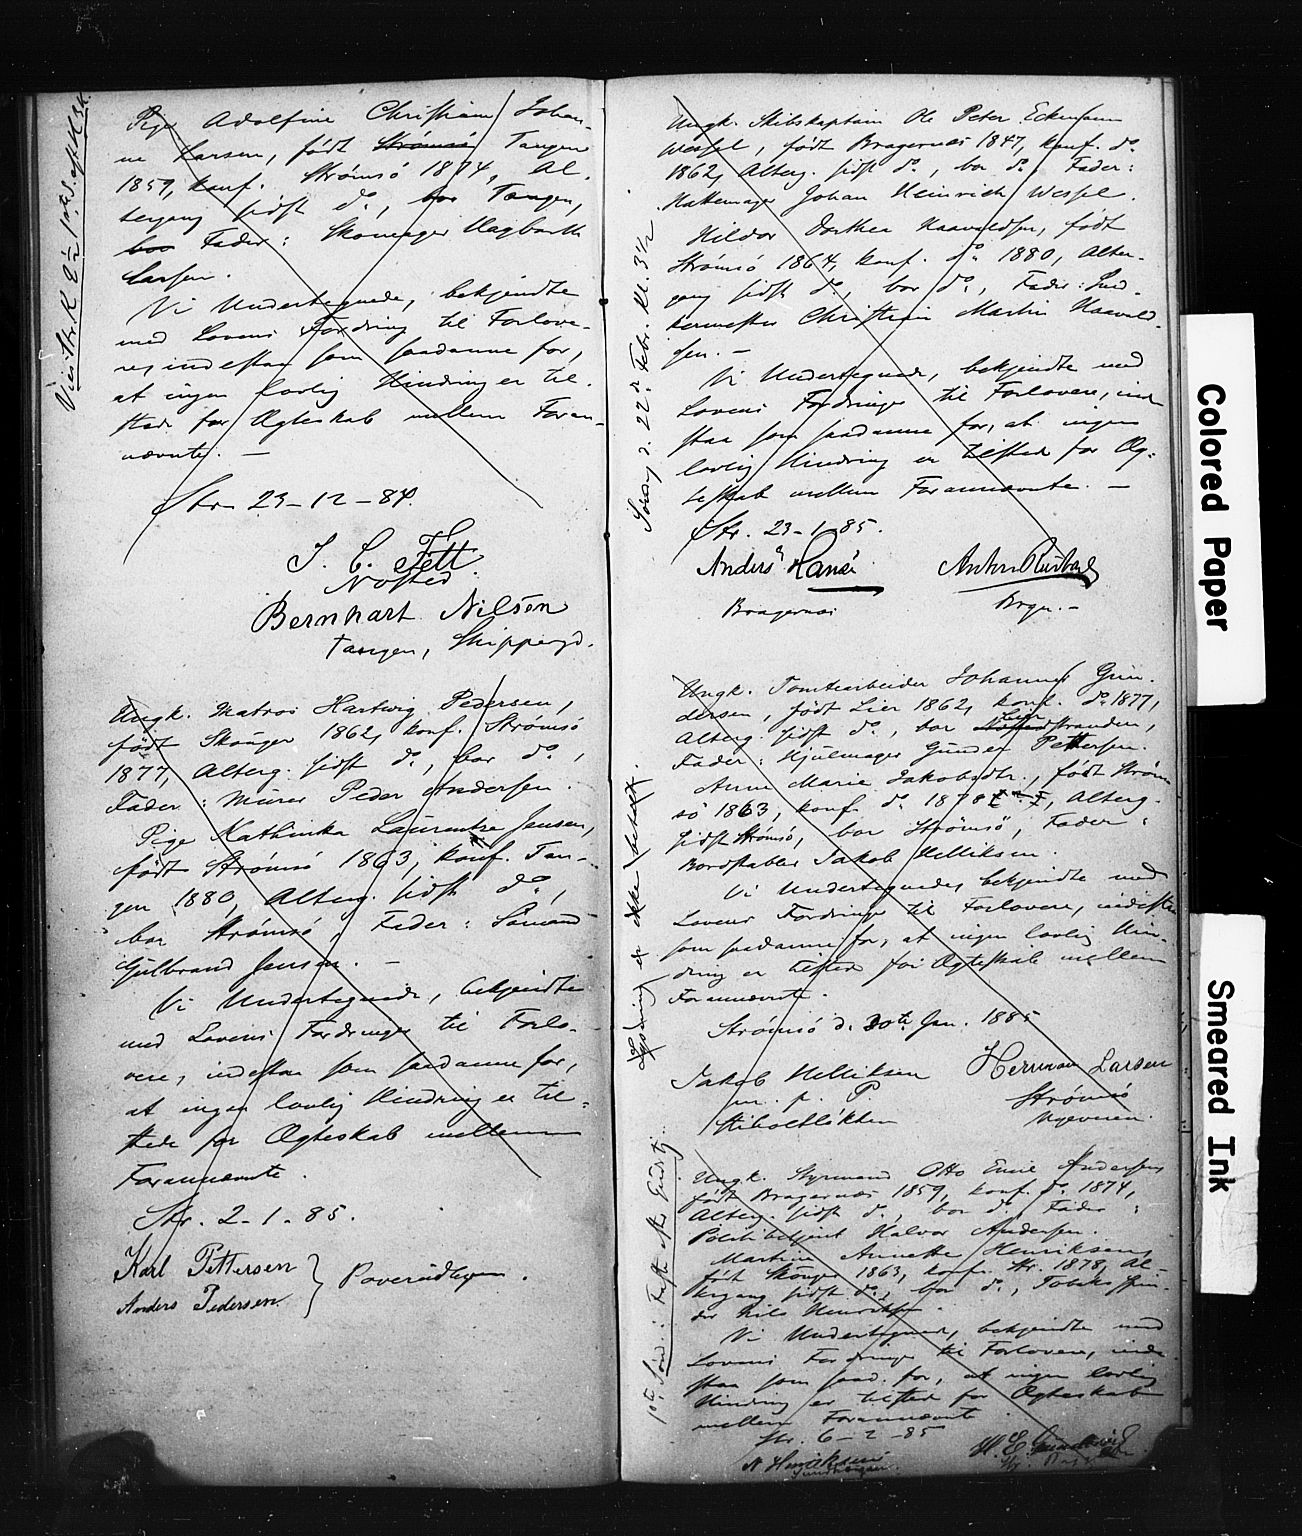 Pige Adolfine Christiane Johan-
ne Larsen, født Strømsø Tangen
1859, konf. Strømsø 1874, Al-
tergang sidst do, bor Tangen,
bor Fader: Skomager Hagbarth
Larsen.
Vi Undertegnede, bekjendte
med Lovens Fordring til Forlove-
re, indestaa som saadanne for,
at ingen lovlig Hindring er til-
stede for Ægteskab mellem Foran-
nævnte. —
Str. 23-12-84.
J. C. Fett
Nøsted.
Bernhart Nilsen
Tangen, Skippergd.
Ungk. Matros Hartvig Pedersen,
født Skoger 1862, konf. Strømsø
1877, Alterg. sidst do, bor do,
Fader: Murer Peder Andersen.
Pige Mathinka Laurentze Jensen,
født Strømsø 1863, konf. Tan-
gen 1880, Alterg. sidst do,
bor Strømsø, Fader: Sømand
Gulbrand Jensen. —
Vi Undertegnede, bekjendte
med Lovens Fordringer til Forlo-
vere, indestaa som saadanne for,
at ingen lovlig Hindring er til-
stede for Ægteskab mellem
Forannævnte.
Str. 2-1-85.
Karl Pettersen
Anders Pedersen
Ungk. Skibskaptain Ole Peter Eckmann
Wessel, født Bragernæs 1847, konf. do
1862, Alterg. sidst do, bor do, Fader:
Hattemager Johan Heinrich Wessel.
Hilda Dorthea Haavaldsen, født
Strømsø 1864, konf. do 1880, Alter-
gang sidst do, bor do, Fader:
Christian Martin Haavald-
sen. —
Vi Undertegnede, bekjendte med
Lovens Fordringer til Forlovere, inde-
staa som saadanne for, at ingen
lovlig Hindring er tilstede for Æg-
teskab mellem Forannævnte. —
Str. 23-1-85.
Anders Hansen
Bragernæs
Søndag d. 22de Febr. Kl. 3½
Ungk. Tomtearbeider Johannes Gun-
dersen, født Lier 1862, konf. do 1877,
Alterg. sidst do, bor Lierstranden,
Fader: Hjulmager Gunder Pettersen.
Anne Marie Jakobsdtr., født Strøm-
sø 1863, konf. do 1878, Alterg.
sidst Strømsø, bor Strømsø, Fader:
Bordstabler Jakob Helliksen.
Vi Undertegnede, bekjendte med
Lovens Fordringer til Forlovere, indestaa
som saadanne for, at ingen lovlig Hin-
dring er tilsted for Ægteskab mellem
Forannævnte.
Strømsø d. 30te Jan. 1885
Jakob Helliksen
m. p. P.
Herman Larsen
Strømsø
Lysning er ikke betalt.
Ungk. Styrmand Otto Emil Andersen
født Bragernæs 1859, konf. do 1874,
Alterg. sidst do, bor do, Fader:
Politibetjent Halvor Andersen.
Martine Annette Henriksen,
født Skoger 1863, konf. Str. 1878, Al-
tergang sidst do, bor do, Tobaksspin-
der Nils Henriksen.
Vi Undertegnede, bekjendte med
Lovens Fordringer til Forlovere, inde-
staa som saad. for, at ingen lovlig
Hindring er tilsted for Ægteskab
mellem Forannævnte
Str. 6-2-85
N Henriksen
Colored Paper
Smeared Ink